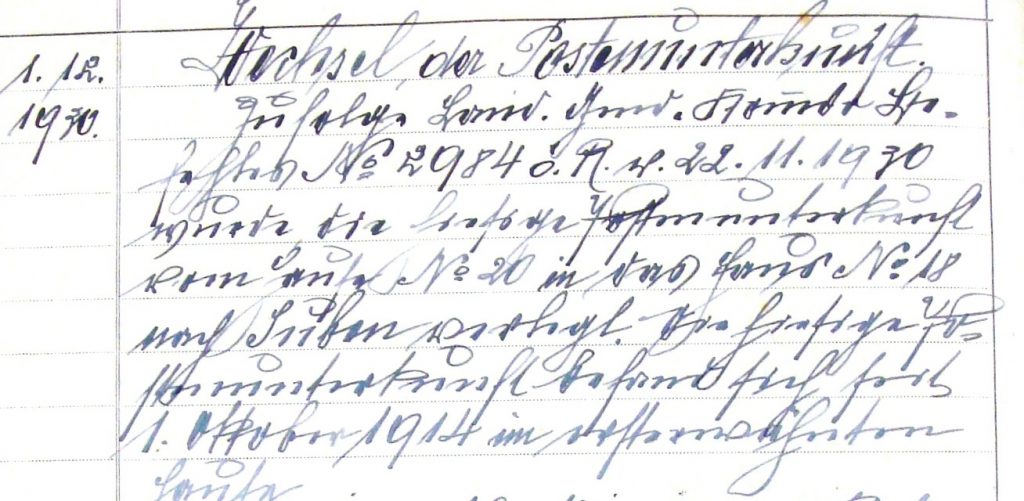 1. 12.
1930.
Wechsel der Postenunterkunft.
Zufolge Land. Gend. Komdo Be-
fehles No 2984 ö. R. v. 22. 11. 1930
wurde die hiesige Postenunterkunft
vom Hause No 20 in das Haus No 18
nach Suben verlegt. Die hiesige Po-
stenunterkunft befand sich seit
1. Oktober 1914 im ersterwähnten
Hause